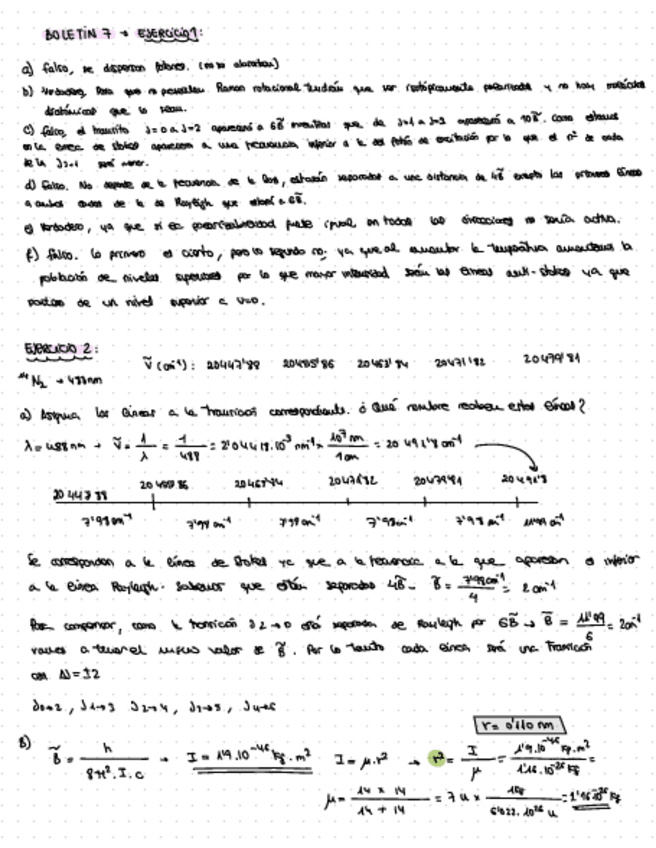 BOLETÍN 7 → EJERCICIO 1:
a) falso, se dispersan fotones. (no se absorben)
b) Verdadero. Para que no presenten Raman rotacional tendrían que ser isotópicamente polarizada y no hay moléculas
diatómicas que lo sean.
c) falso, el transito J=0 a J=2 aparecerá a 6B̃ mientras que de J=1 a J=3 aparecerá a 10B̃. Como estamos
en la línea de Stokes aparecen a una frecuencia inferior a la del fotón de excitación por lo que el nº de onda
de la será menor.
d) Falso. No depende de la frecuencia de la luz, estarán separadas a una distancia de 4B̃ excepto las primeras líneas
a ambos lados de la de Rayleigh que estará a 6B̃.
e) Verdadero, ya que si es polarizabilidad fuese igual en todas las direcciones no sería activa.
f) falso. Lo primero es cierto, pero lo segundo no, ya que al aumentar la temperatura aumentamos la
población de niveles superiores por lo que mayor intensidad serán las líneas anti-stokes ya que
pasamos de un nivel superior a uno.
EJERCICIO 2:
ṽ (cm⁻¹): 20447'88 20455'86 20463'84 20471'82 20479'81
¹⁴N₂ → 488nm
a) Asigna las líneas a la transición correspondiente. ¿Qué nombre reciben estas líneas?
λ = 488 nm → ṽ = 1/λ = 1/488 = 2'04918·10⁻³ nm⁻¹ × 10⁷ nm/1cm = 20 491'8 cm⁻¹
20 447'88 20 455'86 20463'84 20471'82 20479'81 20 491'8
7'98 cm⁻¹ 7'98 cm⁻¹ 7'98 cm⁻¹ 7'98 cm⁻¹ 7'98 cm⁻¹ 11'99 cm⁻¹
Se corresponden a la línea de Stokes ya que a la frecuencia a la que aparecen es inferior
a la línea Rayleigh. Sabemos que están separadas 4B̃ → B̃ = 7'98cm⁻¹/4 = 2 cm⁻¹
Para comprobar, como la transición J 2→0 está separada de Rayleigh por 6B̃ → B̃ = 11'99/6 = 2cm⁻¹
vamos a tener el mismo valor de B̃. Por lo tanto cada línea será una transición
con ΔJ = ±2
J0→2, J1→3 J2→4, J3→5, J4→6
r = 0'110 nm
B) B̃ = h/8π²·I·c → I = 1'9·10⁻⁴⁶ kg·m² I = μ·r² → r² = I/μ = 1'9·10⁻⁴⁶ kg·m²/1'16·10⁻²⁶ kg =
μ = 14 x 14/14 + 14 = 7 u × 1kg/6'022·10²⁶ u = 1'16·10⁻²⁶ kg